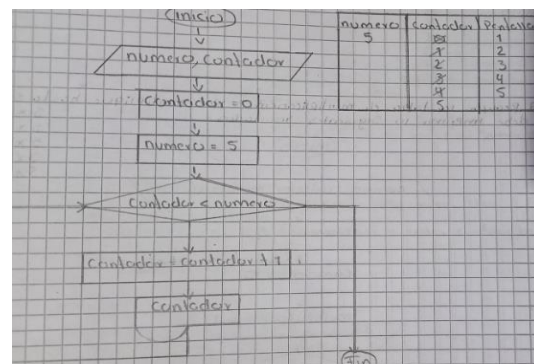 Inicio
numero, contador
contador = 0
numero = 5
contador < numero
contador = contador + 1
contador
Fin
numero contador Pantalla
5 0 1
1 2
2 3
3 4
4 5
5